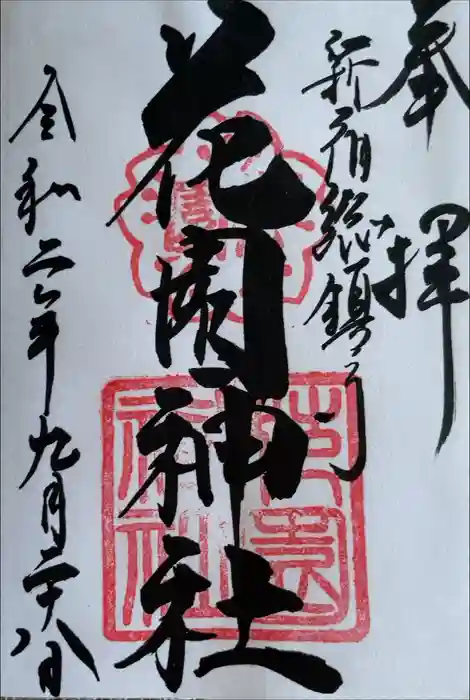 奉拝
新宿総鎮守
花園神社
令和二年九月二十八日
花園
神社